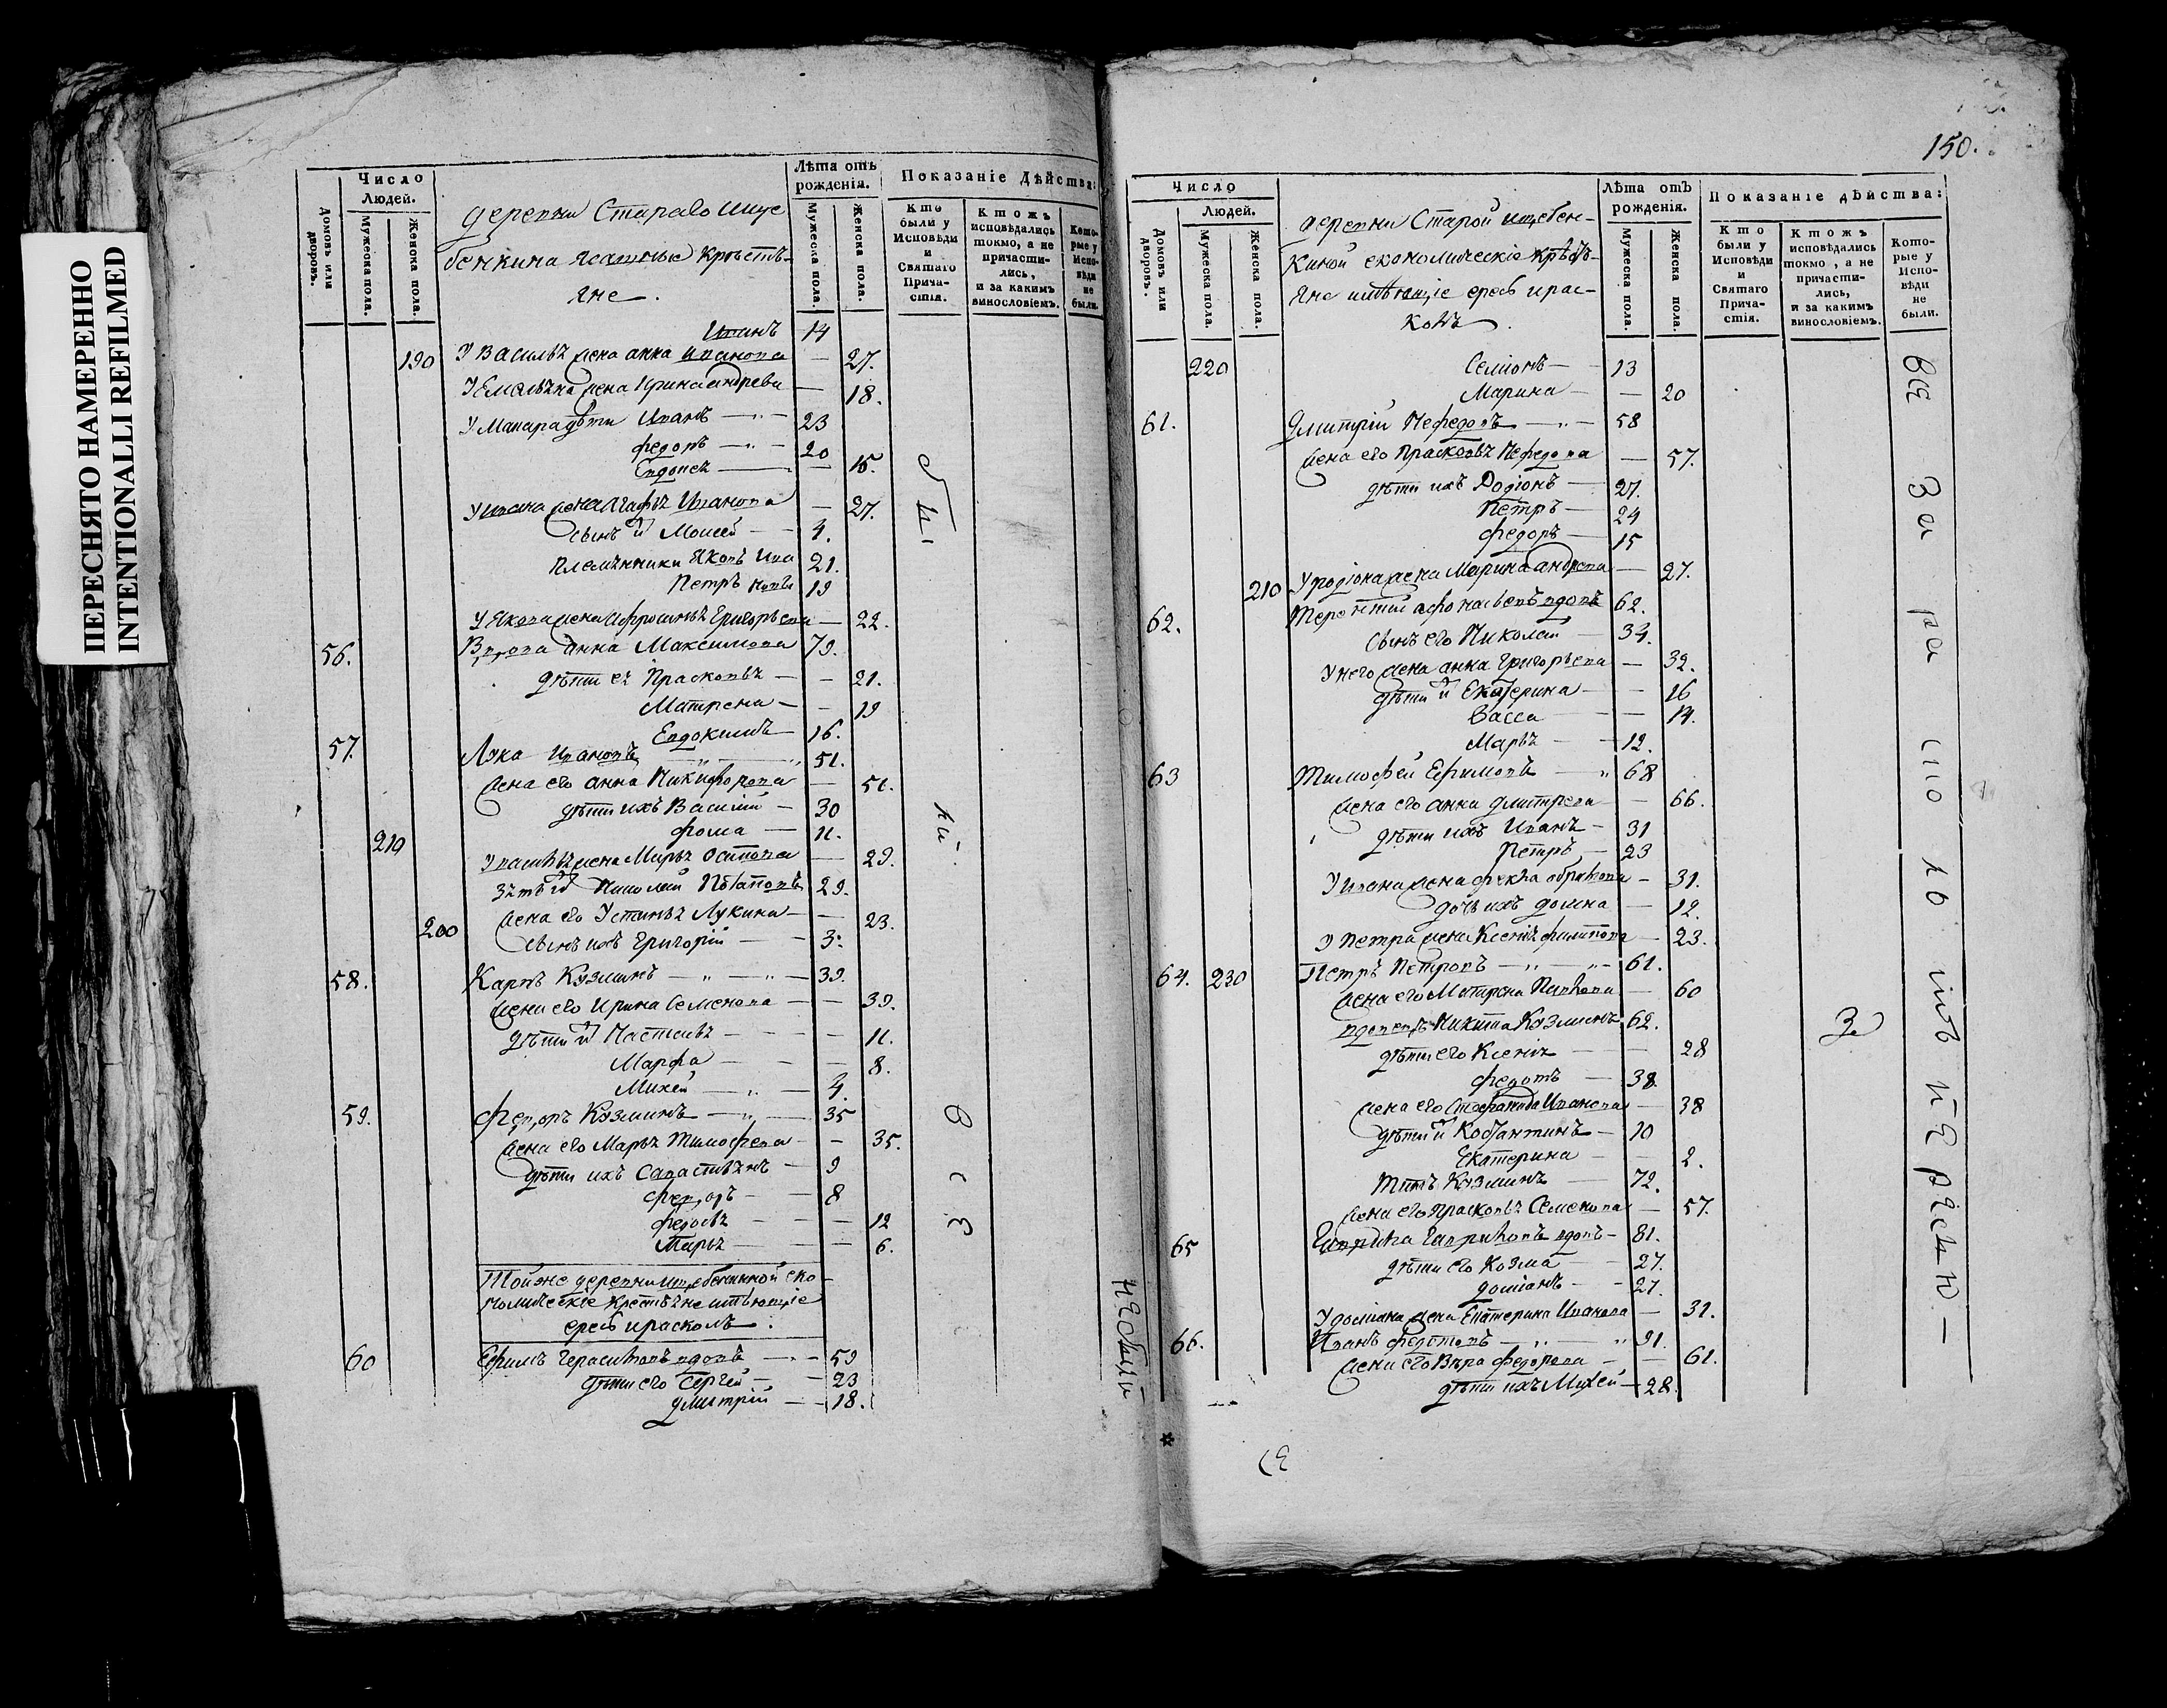 ПЕРЕСНЯТО НАМЕРЕННО
INTENTIONALLI REFILMED
Число
Людей.
Домовъ или дворовъ.
Мужеска пола.
Женска пола.
деревни Стараво Ище
бенкина ясашные крѣстья-
яне.
Лѣта отъ
рожденія.
Мужеска пола.
Женска пола.
Показаніе Дѣйства:
Кто
были у
Исповѣди
и
Святаго
Прича-
стія.
Ктожъ
исповѣдались
токмо, а не
причасти-
лись,
и за какимъ
винословіемъ.
Кото-
рые у
Испо-
вѣди
не
были.
Иванъ 14
190 У Василья жена Анна Иванова — 27.
У Емельяна жена Ирина Андреева — 18.
У Макара дѣти Иванъ — 23
Федоръ — 20
Евдокея — 15.
У Ивана жена Агафья Иванова — 27.
сынъ и Моисей — 4.
племянники Яковъ Ива 21.
Петръ новы 19
У Якова жена Афросинья Григорьева — 22.
56. Вдова Анна Максимова 79.
дѣти ея Прасковья — 21.
Матрена — 19
Евдокимъ — 16.
57. Лука Ивановъ 51.
жена его Анна Никифорова — 51.
дѣти ихъ Василий — 30
210 Фома — 11.
У Василья жена Марья Осипова — 29.
зять и Николай Потаповъ 29.
200 жена его Устинья Лукина — 23.
сынъ ихъ Григорій — 3.
58. Карпъ Козминъ — 39.
жена его Ирина Семенова — 39.
дѣти и Настасья — 11.
Марфа — 8.
Михей — 4.
59. Федоръ Козминъ — 35
жена его Марья Тимофеева — 35.
дѣти ихъ Савастьянъ — 9
Федоръ — 8
Федосья — 12
Марья — 6.
Тойже деревни Ищебенкиной еко-
номическіе крестьяне имѣющіе
ересь и расколъ.
60 Ефимъ Герасимовъ вдовъ — 59
дѣти его Сергей — 23
Дмитрій — 18.
небыли
150.
Число
Людей.
Домовъ или дворовъ.
Мужеска пола.
Женска пола.
деревни Старой Ищебен-
киной економическіе крѣстья-
яне имѣющіе ересь и рас-
колъ.
Лѣта отъ
рожденія.
Мужеска пола.
Женска пола.
Показаніе дѣйства:
Кто
были у
Исповѣди
и
Святаго
Прича-
стія.
Ктожъ
исповѣдались
токмо, а не
причасти-
лись,
и за какимъ
винословіемъ.
Кото-
рые у
Испо-
вѣди
не
были.
220 Семіонъ — 13
Марина — 20
61. Дмитрій Нефедовъ — 58
жена его Прасковья Нефедова — 57.
дѣти ихъ Родіонъ — 27.
Петръ — 24
Федоръ — 15
210 У Родіона жена Марина Андреева — 27.
62. Терентий Афонасьевъ вдовъ 62.
сынъ его Николай — 34.
У него жена Анна Григорьева — 32.
дѣти и Екатерина — 16
Васса — 14.
Марья — 12.
63 Тимофей Ефимовъ — 68
жена его Анна Дмитрева — 66.
дѣти ихъ Иванъ — 31
Петръ — 23
У Ивана жена Фекла — 31.
дочь ихъ Домна — 12.
У Петра жена Ксенья Филипова — 23.
64. 230 Петръ Петровъ — 61.
жена его Матрена — 60
вдовецъ Никита Козминъ 62.
дѣти его Ксенья — 28
Федотъ — 38.
жена его Стефанида Иванова — 38
дѣти и Костантинъ — 10
Екатерина — 2.
Титъ Козминъ — 72.
жена его Прасковья Семенова — 57.
65 Гаврила Гавриловъ вдовъ — 81.
дѣти его Козма — 27.
Доміанъ — 27.
У Доміана жена Екатерина Иванова — 31.
66. Иванъ Федотовъ — 91.
жена его Вера Федорова — 61.
дѣти ихъ Михей — 28.
За